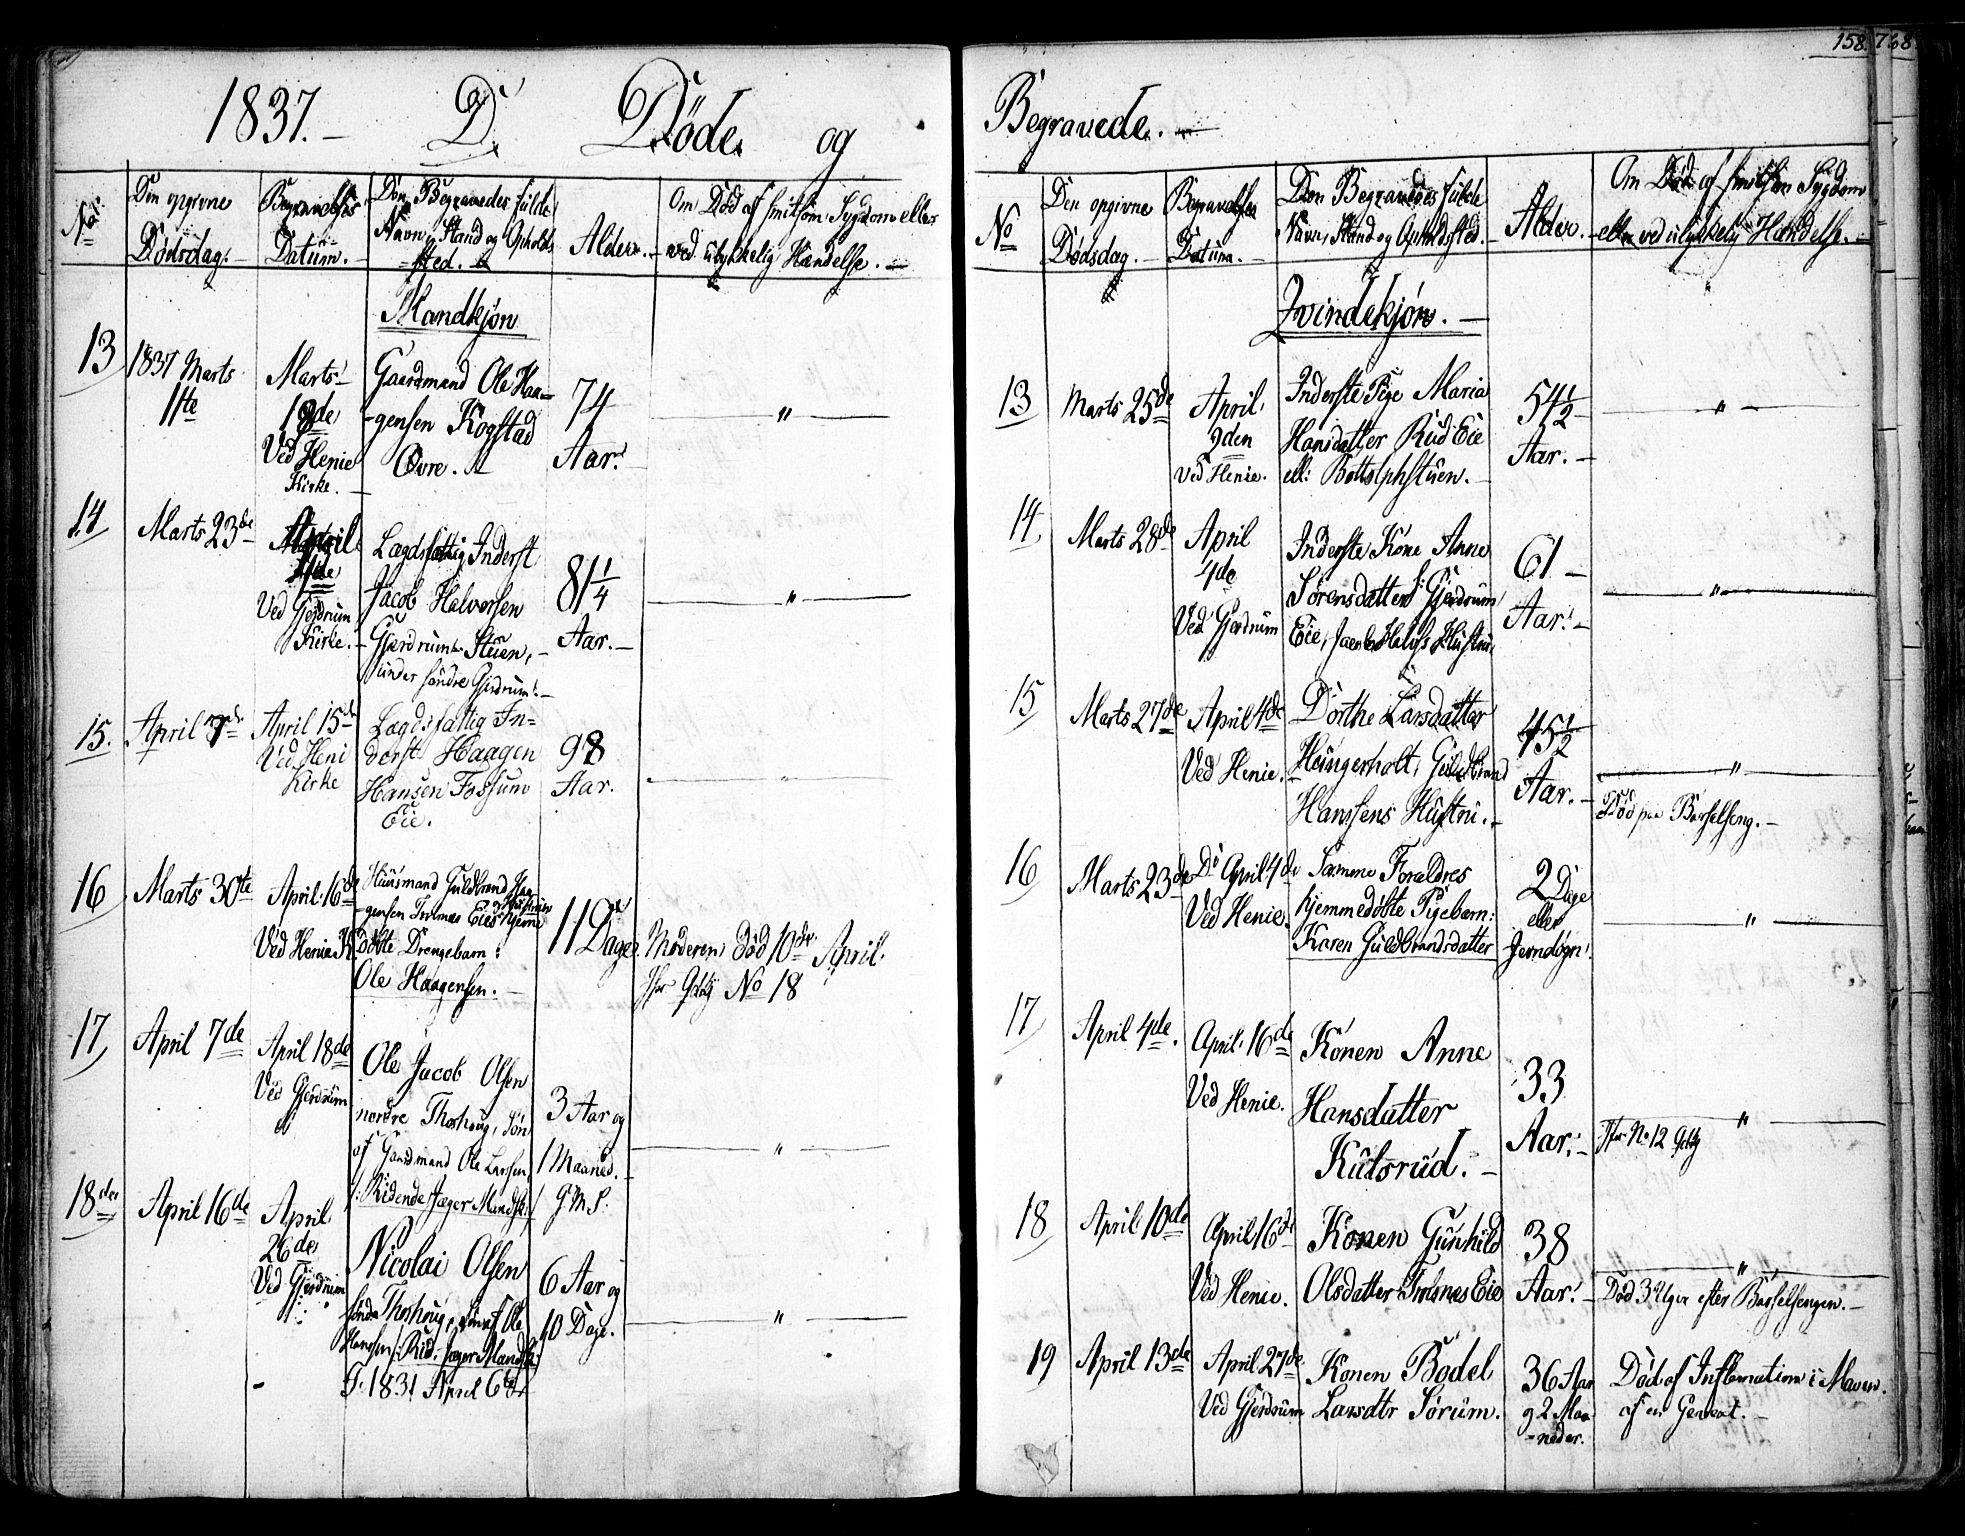 158. 768.
1837.— D. Døde og
Begravede.—
No
Den opgivne
Dødsdag.—
Begravelses
Datum.—
Den Begravedes fulde
Navn, Stand og Opholds
-sted.—
Alder.—
Om Død af smitsom Sygdom eller
ved ulykkelig Hændelse.—
Mandkjøn
13
1837 Marts
11te
Marts
18de
Ved Henie
Kirke.—
Gaardmand Ole Haa-
-gensen Kogstad
Øvre.
74
Aar.
—"—
14
Marts 23de
April
Ved Gjerdrum
Kirke.—
Lægdsfattig Inderst
Jacob Halvorsen
Gjerdrum Stuen,
under søndre Gjerdrum.—
81 1/4
Aar.—
—"—
15.
April 7de
April 15de
Ved Heni
Kirke
Lægdsfattig In-
derst Haagen
Hansen Fossum
Eie.
98
Aar.
—"—
16
Marts 30te
April 16de
Ved Henie K.
Huusmand Guldbrand Haa
-gensen Eies hjemme
døbte Drengebarn:
Ole Haagensen.—
11 Dage
Moderen død 10de April.
No 18
17
April 7de
April 18de
Ved Gjerdrum
Ole Jacob Olsen
nordre Thorhoug, Søn
af Gaardmand Ole Larsen
/: Ridende Jæger Mandsk:/
3 Aar og
1 Maaned.—
—"—
18de
April 16de
April
26de
Ved Gjerdrum
Nicolai Olsen
søndre Thorhoug, Søn af Ole
Hansen /: Rid. Jæger Mandsk:/
F: 1831 April 6te
6 Aar og
10 Dage.
—"—
No
Den opgivne
Dødsdag.—
Begravelses
Datum.—
Den Begravedes fulde
Navn, Stand og Opholdssted.—
Alder.—
Om Død af smitsom Sygdom
eller ved ulykkelig Hændelse.—
Qvindekjøn.—
13
Marts 25de
April
9den
Ved Henie.
Inderste Pige Maria
Hansdatter Rud Eie
ell: Bottolphstuen.—
54 1/2
Aar.—
—"—
14
Marts 28de
April
4de
Ved Gjerdrum
Inderste Kone Anne
Sørensdatter S: Gjerdrum
Eie, Jacob Halvs Hustru.
61
Aar.—
—"—
15
Marts 27de
April 4de
Ved Henie.
Dorthe Larsdatter
Hungerholt, Guldbrand
Hanssens Hustru.—
45 1/2
Aar.—
—"—
Død paa Barselseng.—
16
Marts 23de
Do April 4de
Ved Henie.
Samme Forældres
hjemmedøbte Pigebarn:
Karen Guldbrandsdatter
2 Dage
eller
Jevndøgn.
—"—
17
April 4de.
April 16de
Ved Henie.
Konen Anne
Hansdatter
Kulsrud.—
33
Aar.—
—"—
No 12
18
April 10de
April 16de
Ved Henie.
Konen Gunhild
Olsdatter Eie
38
Aar.—
—"—
Død 3 Uger efter Barselsengen.—
19
April 13de
April 27de
Ved Gjerdrum
Konen Bodel
Larsdtr Sørum.
36 Aar
og 2 Maa
-neder.
Død af Inflamation i Maven.
af en